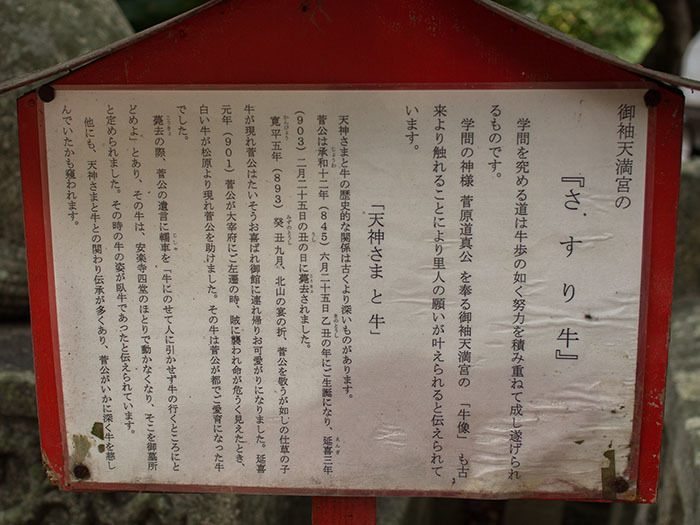 御袖天満宮の
『さすり牛』
学問を究める道は牛歩の如く努力を積み重ねて成し遂げられ
るものです。
学問の神様 菅原道真公 を奉る御袖天満宮の 「牛像」 も古
来より触れることにより里人の願いが叶えられると伝えられて
います。
「天神さま と 牛」
天神さまと牛の歴史的な関係は古くより深いものがあります。
菅公は承和十二年(845)六月二十五日乙丑の年にご生誕になり、延喜三年
(903)二月二十五日の丑の日に薨去されました。
寛平五年(893)癸丑九月、北山の宴の折、菅公を敬うが如しの仕草の子
牛が現れ菅公はたいそうお喜ばれ御館に連れ帰りお可愛がりになりました。延喜
元年(901)菅公が大宰府にご左遷の時、賊に襲われ命が危うく見えたとき、
白い牛が松原より現れ菅公を助けました。その牛は菅公が都でご愛育になった牛
でした。
薨去の際、菅公の遺言に轜車を「牛にのせて人に引かせず牛の行くところにと
どめよ」とあり、その牛は、安楽寺四堂のほとりで動かなくなり、そこを御墓所
と定められました。その時の牛の姿が臥牛であったと伝えられています。
他にも、天神さまと牛との関わり伝承が多くあり、菅公がいかに深く牛を慈し
んでいたかも窺われます。